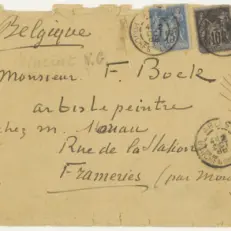 Belgique
Vincent V.G
Monsieur F. Bock
artiste peintre
chez m.
Rue de la Station
Frameries (par Mons
15
10